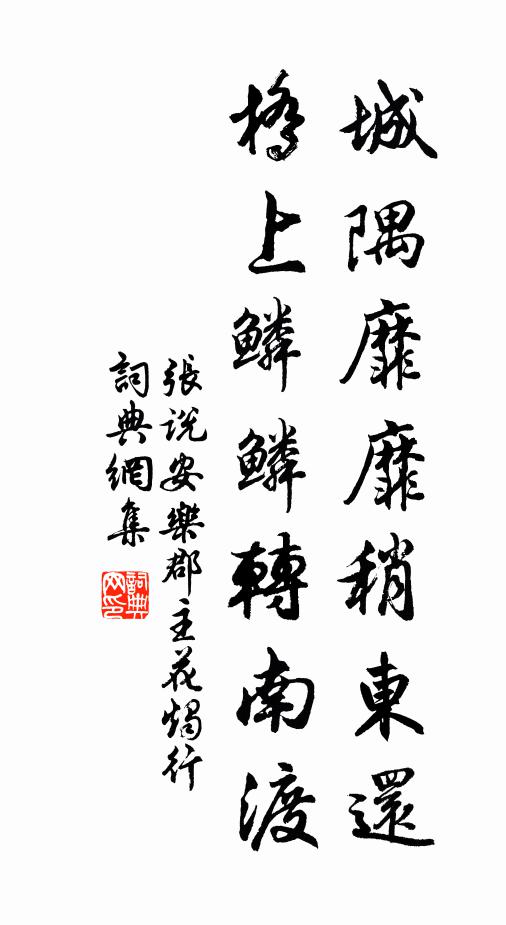 城隅靡靡稍東還
橋上鱗鱗轉南渡
張説安樂郡主花燭行
詞典網集
詞典
网印